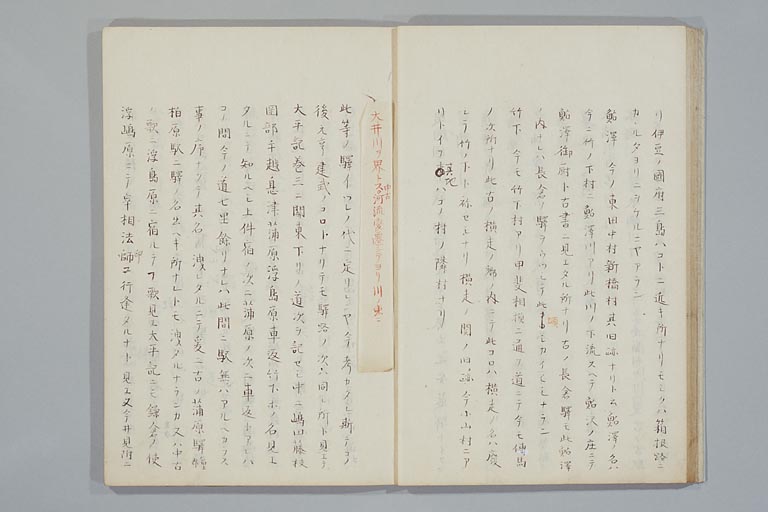 リ伊豆ノ國府三島ハコトニ近キ所ナリモシクハ箱根路ニ
カヽルタヨリニ
鮎澤 今ノ東田中村新橋村其旧跡ナリト云鮎澤名ハ
今ニ竹ノ下村ニ鮎澤川アリ此川ノ下流スヘテ鮎沢ノ庄ニテ
鮎澤御厨ト古書ニ見エタル所ナリ古ノ長倉驛モ此鮎澤
ノ内ナレハ長倉ノ驛ヲ
竹下 今モ竹下村アリ甲斐相模ニ通フ道ニテ今モ傳馬
ノ次所ナリ此古ノ横走ノ郷ノ内ニテ此コロハ横走ノ名ハ廢
シテ竹ノ下ト称セシナリ横走ノ関ノ旧跡今小山村ニア
リトイフ其地ハコノ村ノ隣村ナリ
大井川ヲ界トス中古河流変遷シテヨリ川ノ東ニ
此等ノ驛イツレノ代ニ定リシニヤ今考カタシ斯テコノ
後元亨建武ノコロトナリテモ驛路ノ次ハ同シ所ト見エテ
太平記巻三ニ関東下リノ道次ヲ記セシ中ニ嶋田藤枝
岡部手越息津蒲原浮島原車返竹下ホノ名見エ
タルニテ知ルヘシ上件宿ノ次ニ蒲原ノ次ニ車返トアレハ
コノ間今ノ道七里餘リナレハ此間ニ駅無ハアルヘカラス
事ノ序ナクテ其名ノ洩レタルニテ爰ニ古ノ蒲原驛
柏原駅ニ驛ノ名出ヘキ所ナレトモ洩タルナランカ又ハ中古
ノ歌ニ浮島原ニ宿ルテフ歌見エ太平記ニモ鎌倉ノ使
浮嶋原ニテ宰相法印師ニ行逢タルナト見エ又今井見附ニ